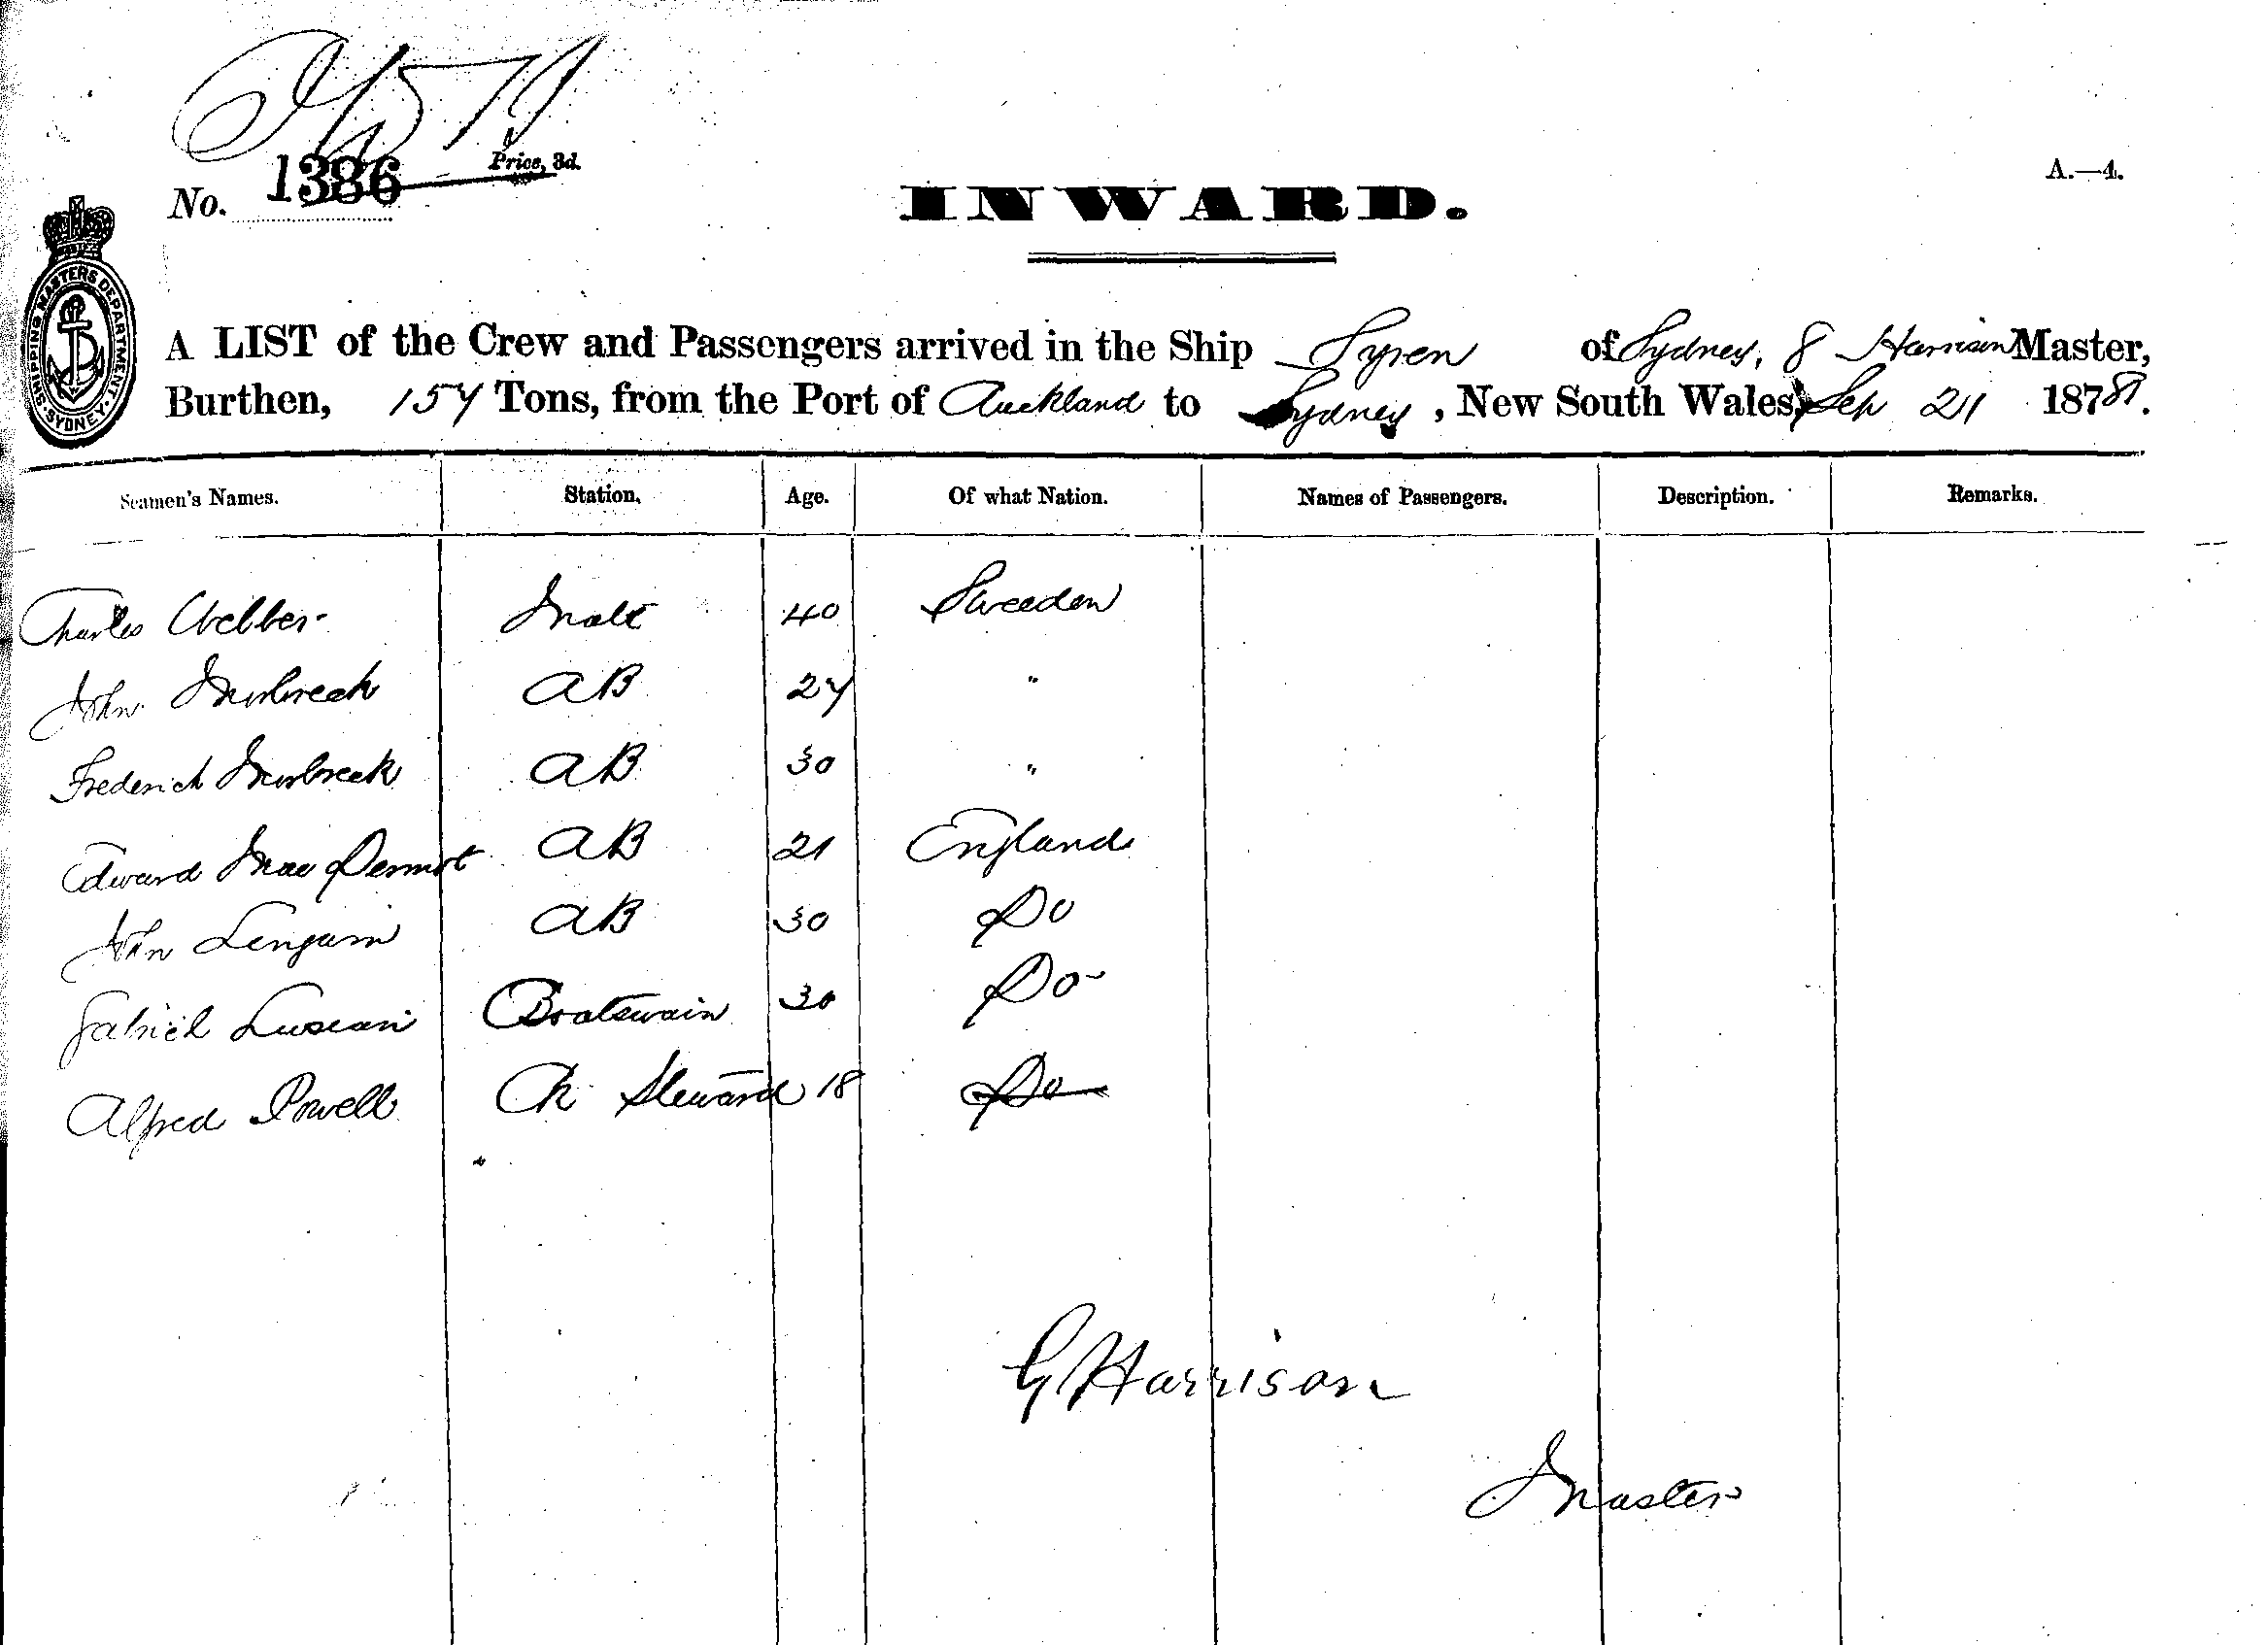 No. 1386 Price, 3d.
A.—4.
INWARD.
SHIPPING MASTERS DEPARTMENT. SYDNEY
A LIST of the Crew and Passengers arrived in the Ship Syren of Sydney, Harrison Master,
Burthen, 157 Tons, from the Port of Auckland to Sydney, New South Wales, Sep 21 1878.
Seamen's Names. Station. Age. Of what Nation. Names of Passengers. Description. Remarks.
Charles Webber Mate 40 Sweeden
John AB 27 "
Frederick AB 30 "
Edward Mac Dermot AB 21 England
John AB 30 Do
Gabriel Boatswain 30 Do
Alfred Powell Ck Steward 18 Do
G Harrison
Master